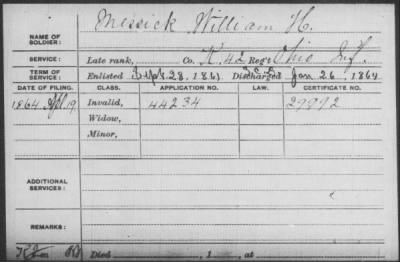 NAME OF SOLDIER: Messick William H.
SERVICE: Late rank, Co. K. 42 Reg't Ohio Inf.
TERM OF SERVICE: Enlisted Sept 28, 1861 Discharged Jan 26, 1864
DATE OF FILING. CLASS. APPLICATION NO. LAW. CERTIFICATE NO.
1864 Apl. 19 Invalid, 44234 29992
Widow,
Minor,
ADDITIONAL SERVICES:
REMARKS:
Died , 1 , at